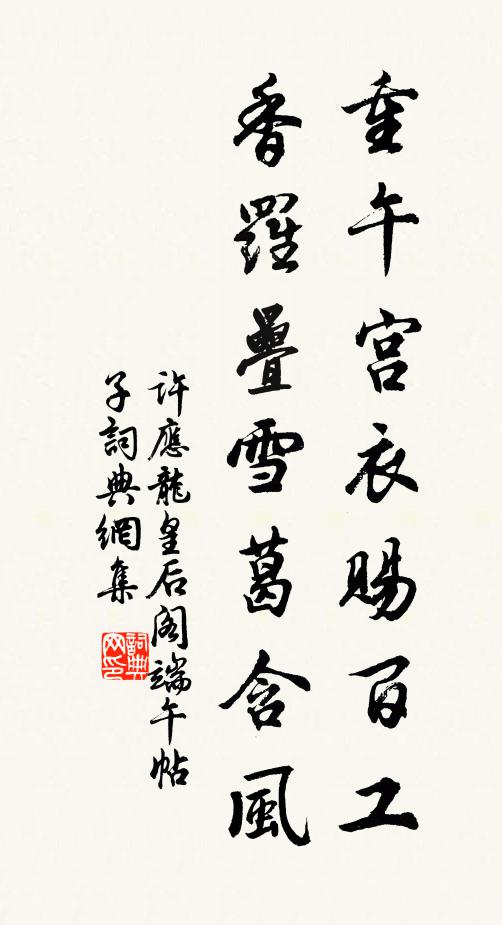 重午宫衣賜百工
香羅疊雪葛含風
許應龍皇后阁端午帖
子詞典網集
詞典网印